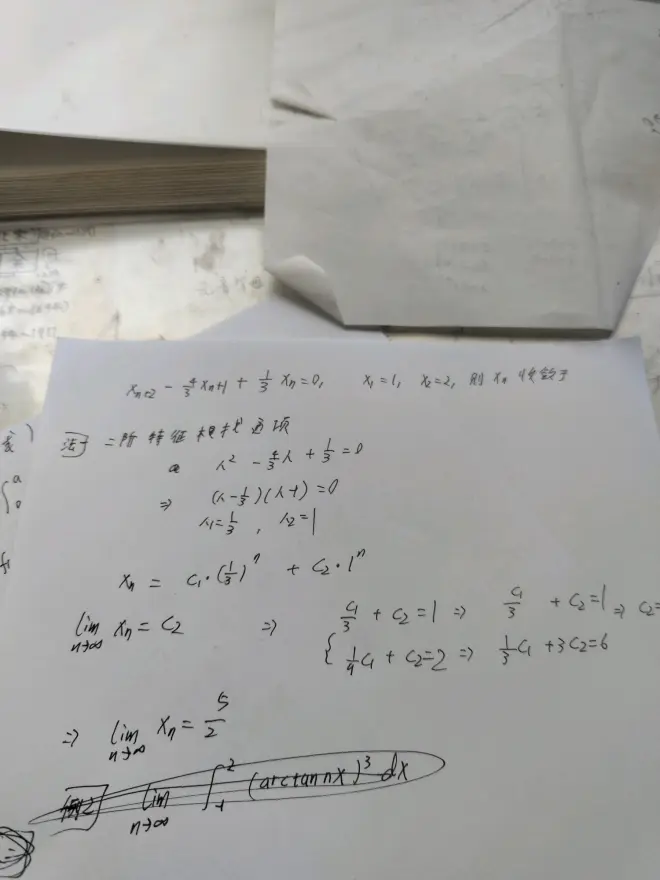 x_{n+2} - \frac{4}{3} x_{n+1} + \frac{1}{3} x_n = 0, x_1 = 1, x_2 = 2, 则 x_n 收敛于
法一 二阶特征根找通项
λ^2 - \frac{4}{3} λ + \frac{1}{3} = 0
⇒ (λ - \frac{1}{3})(λ - 1) = 0
λ_1 = \frac{1}{3}, λ_2 = 1
x_n = C_1 · (\frac{1}{3})^n + C_2 · 1^n
\lim_{n→∞} x_n = C_2 ⇒ { \frac{C_1}{3} + C_2 = 1 ⇒ \frac{C_1}{3} + C_2 = 1 ⇒ C_2 =
\frac{1}{9} C_1 + C_2 = 2 ⇒ \frac{1}{3} C_1 + 3C_2 = 6
⇒ \lim_{n→∞} x_n = \frac{5}{2}
\lim_{n→∞} \int_{-1}^{2} (arctan nx)^3 dx